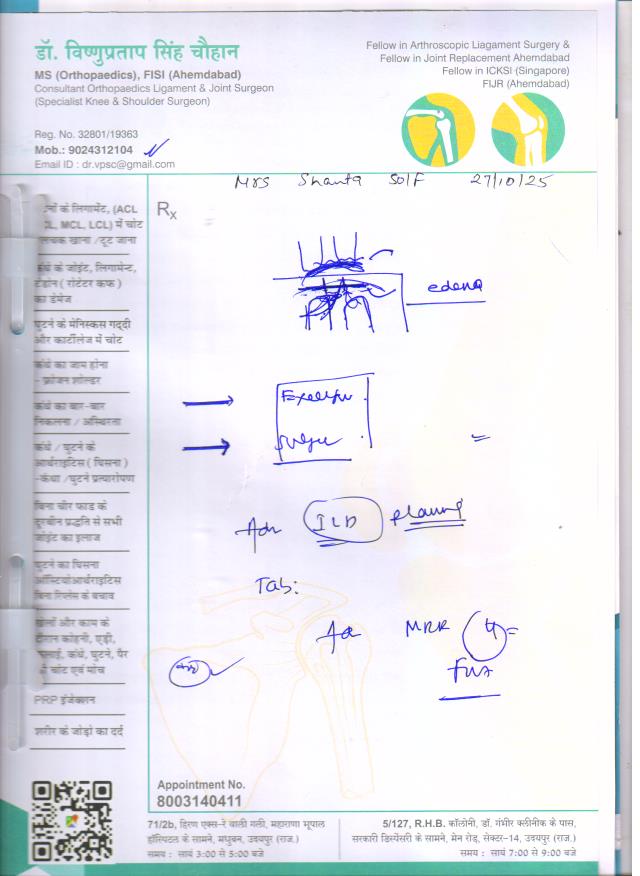 डॉ. विष्णुप्रताप सिंह चौहान
MS (Orthopaedics), FISI (Ahemdabad)
Consultant Orthopaedics Ligament & Joint Surgeon
(Specialist Knee & Shoulder Surgeon)
Reg. No. 32801/19363
Mob.: 9024312104
Email ID : dr.vpsc@gmail.com
Fellow in Arthroscopic Liagament Surgery &
Fellow in Joint Replacement Ahemdabad
Fellow in ICKSI (Singapore)
FIJR (Ahemdabad)
Mrs Shanta 50/F 27/10/25
Rx
के लिगामेंट, (ACL
MCL, LCL) में चोट
लचक खाना / टूट जाना
कंधे के जोइंट, लिगामेन्ट,
टेंडोन ( रोटेटर कफ )
का डेमेज
घुटने के मेनिस्कस गद्दी
और कार्टीलेज में चोट
कंधे का जाम होना
- फ्रोजन शोल्डर
कंधे का बार-बार
निकलना / अस्थिरता
कंधे / घुटने के
आर्थराइटिस ( घिसना )
-कंधा / घुटने प्रत्यारोपण
बिना चीर फाड के
दूरबीन प्रद्धति से सभी
जोइंट का इलाज
घुटने का घिसना
ऑस्टियोआर्थराइटिस
बिना रिप्लेस के बचाव
खेलों और काम के
दौरान कोहनी, एडी,
कलाई, कंधे, घुटने, पैर
चोट एवं मोच
PRP इंजेक्शन
शरीर के जोड़ो का दर्द
edema
Adv
Tab:
MRR
Appointment No.
8003140411
71/2b, हिरण एक्स-रे वाली गली, महाराणा भूपाल
हॉस्पिटल के सामने, मधुबन, उदयपुर (राज.)
समय : सायं 3:00 से 5:00 बजे
5/127, R.H.B. कॉलोनी, डॉ. गंभीर क्लीनीक के पास,
सरकारी डिस्पेंसरी के सामने, मेन रोड़, सेक्टर-14, उदयपुर (राज.)
समय : सायं 7:00 से 9:00 बजे